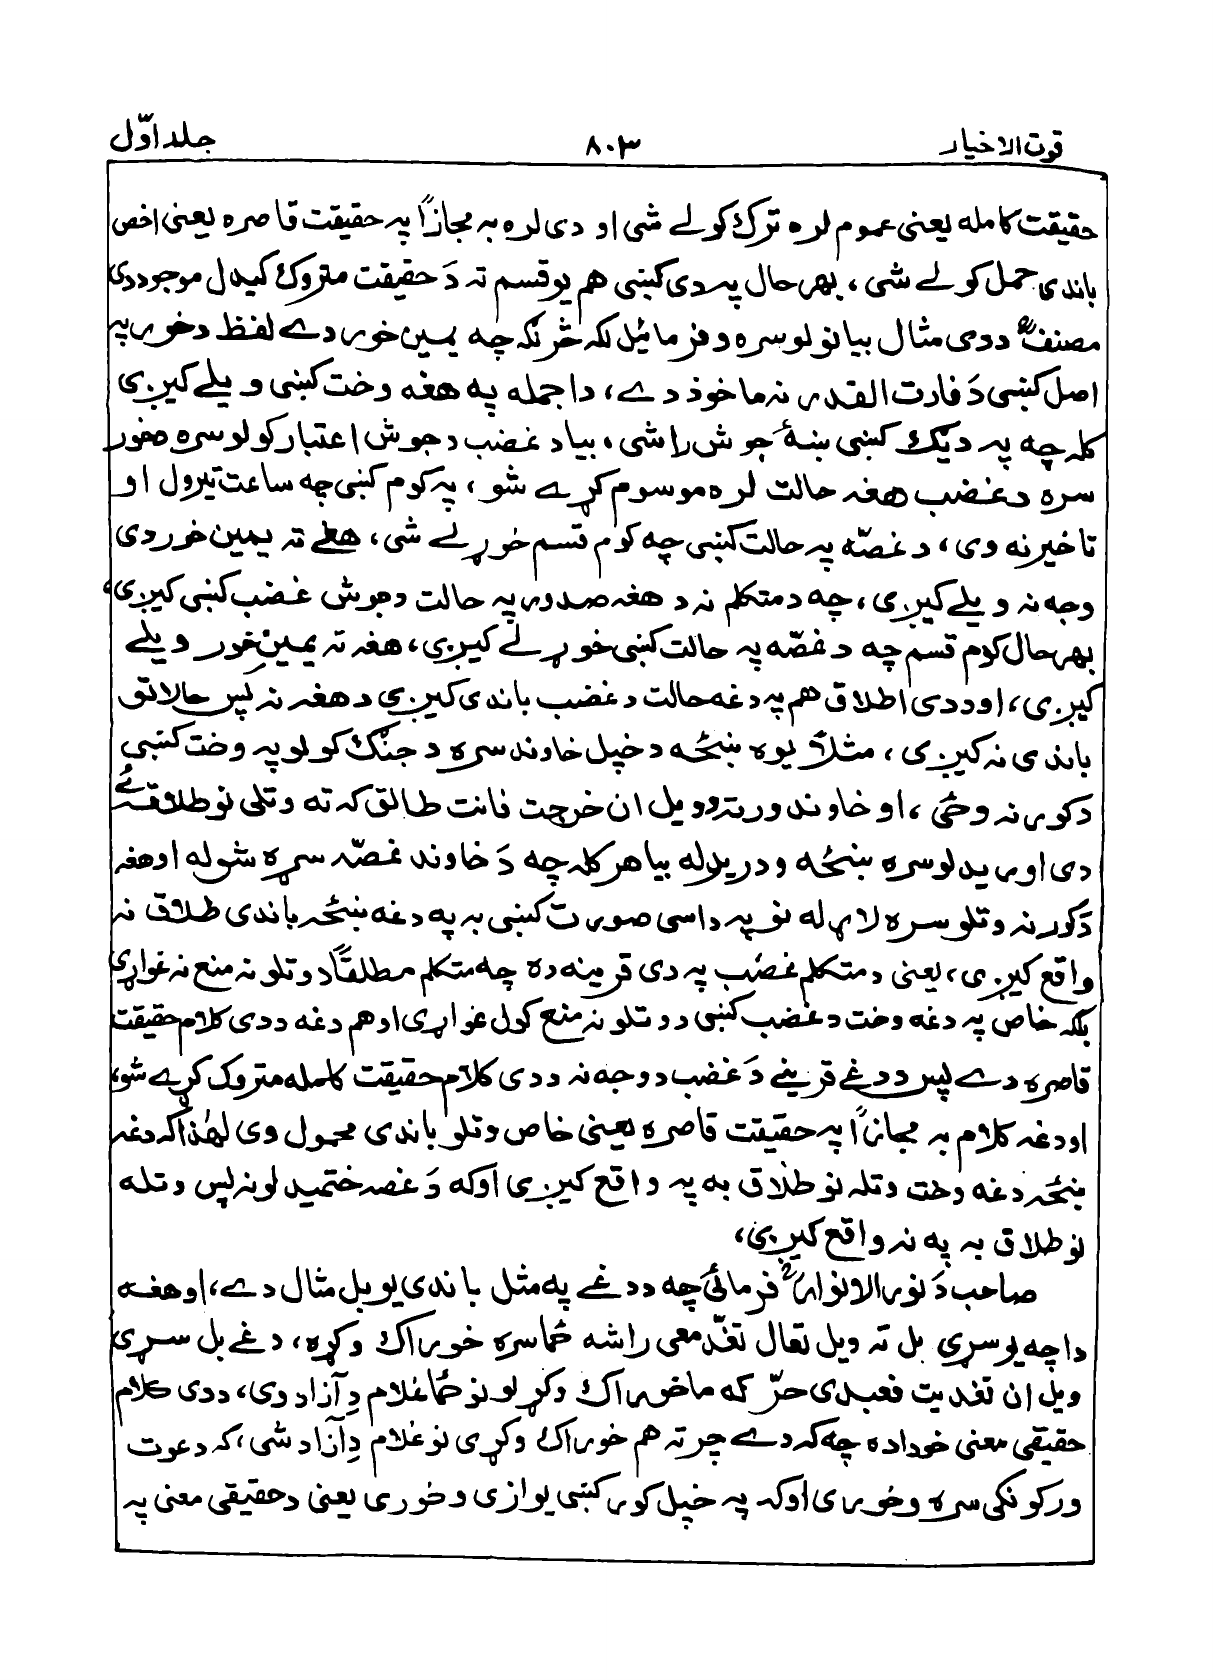 قوت الاخیار ۸۰۳ جلد اوّل
حقیقت کامله یعنی عموم لره ترک کولے شی او دی لره به مجازاً په حقیقت قاصره یعنی اخص
باندی حمل کولے شی، بهر حال په دی کښی هم یو قسم ته دَ حقیقت متروک کیدل موجود دی
مصنفؒ ددی مثال بیانولو سره وفرمائیل لکه څرنګه چه یمین خور دے لفظ د خور په
اصل کښی دَ فارت القدر نه ماخوذ دے، دا جمله په هغه وخت کښی ویلے کیږی
کله چه په دیګ کښی ښهٔ جوش راشی، بیا د غضب د جوش اعتبار کولو سره په فور
سره د غضب هغه حالت لره موسوم کړے شو، په کوم کښی چه ساعت تیرول او
تاخیر نه وی، د غصّه په حالت کښی چه کوم قسم خوړلے شی، هغے ته یمین خور دی
وجه نه ویلے کیږی، چه د متکلم نه د هغه صدور په حالت د جوش غضب کښی کیږی،
بهر حال کوم قسم چه د غصّه په حالت کښی خوړلے کیږی، هغه ته یمین خور ویلے
کیږی، او ددی اطلاق هم په دغه حالت د غضب باندی کیږی د هغه نه پس حالاتو
باندی نه کیږی، مثلاً یوه ښځه د خپل خاوند سره د جنګ کولو په وخت کښی
د کور نه وځی، او خاوند ورته وویل ان خرجت فانت طالق که ته وتلی نو طلاقه ئے
دی اوریدلو سره ښځه ودریدله بیا هر کله چه دَ خاوند غصّه سړه شوله او هغه
دَ کور نه وتلو سره لاړله نو په داسی صورت کښی به په دغه ښځه باندی طلاق نه
واقع کیږی، یعنی د متکلم غضب په دی قرینه ده چه متکلم مطلقاً د وتلو نه منع نه غواړی
بلکه خاص په دغه وخت د غضب کښی د وتلو نه منع کول غواړی او هم دغه ددی کلام حقیقت
قاصره دے پس ددغے قرینے دَ غضب د وجه نه ددی کلام حقیقت کامله متروک کړے شو،
او دغه کلام به مجازاً په حقیقت قاصره یعنی خاص وتلو باندی محمول وی لهٰذا که دغه
ښځه دغه وخت وتله نو طلاق به په واقع کیږی او که دَ غصه ختمیدلو نه پس وتله
نو طلاق به په نه واقع کیږی،
صاحب دَ نور الانوارؒ فرمائی چه ددغے په مثل باندی یو بل مثال دے، او هغه
دا چه یو سړی بل ته ویل تعال تغدّ معی راشه ځما سره خوراک وکړه، دغے بل سړی
ویل ان تغدیت فعبدی حرّ که ما خوراک وکړلو نو ځما غلام دِ آزاد وی، ددی کلام
حقیقی معنی خو دا ده چه که دے چرته هم خوراک وکړی نو غلام دِ آزاد شی، که دعوت
ورکونکی سره وخوری او که په خپل کور کښی یوازی وخوری یعنی د حقیقی معنی په